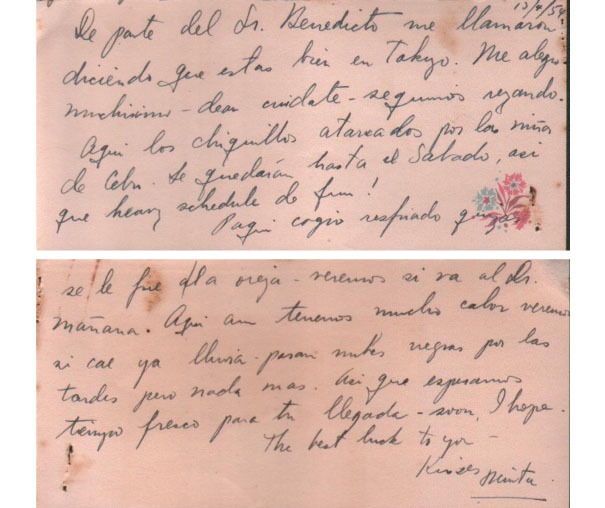 13/ /54
De parte del Sr. Benedicto me llamaron
diciendo que estas bien en Tokyo. Me alegro
muchisimo - dear cuidate - seguimos rezando.
Aqui los chiquillos atareados por las niñas
de Cebu. Se quedarán hasta el Sabado, asi
que heavy schedule de fun!
Paqui cogio resfriado quizas
se le fue a la oreja - veremos si va al Dr.
mañana. Aqui aun tenemos mucho calor veremos
si cae ya lluvia - pasan nubes negras por las
tardes pero nada mas. Asi que esperamos
tiempo fresco para tu llegada - soon, I hope.
The best luck to you -
Kisses